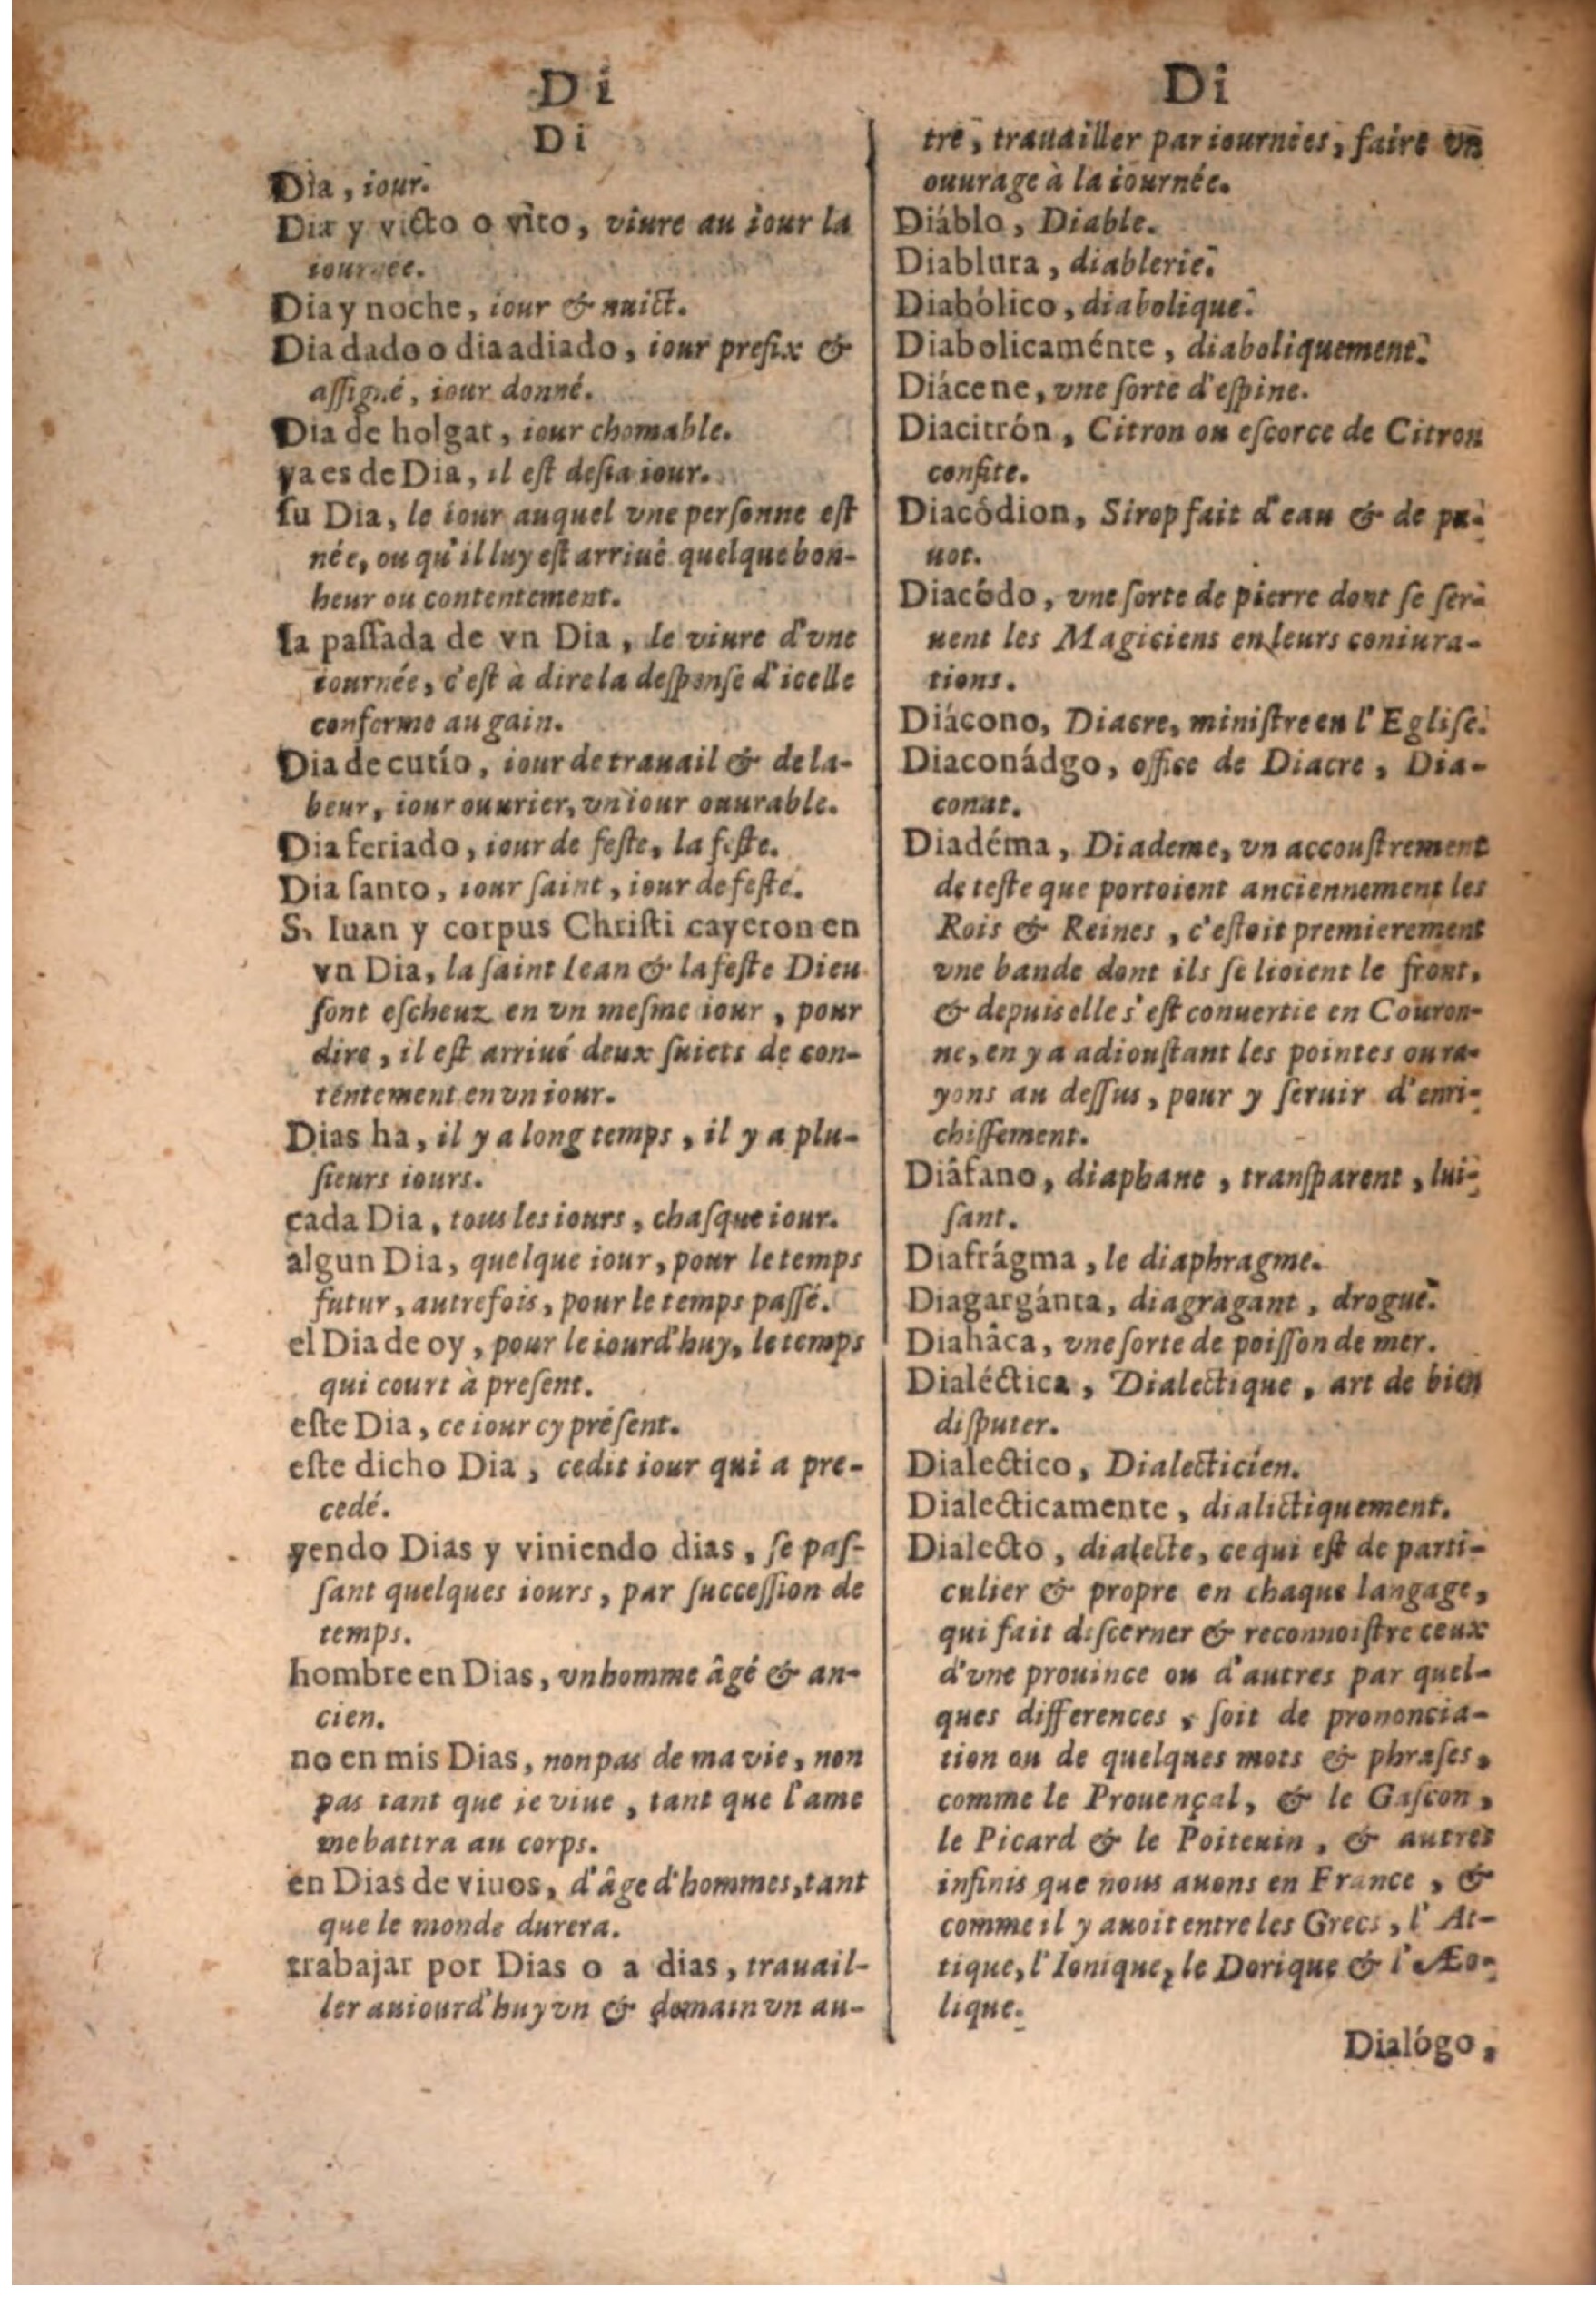 Di
Di
Dia, iour.
Dia y victo o vito, viure au iour la
iournee.
Dia y noche, iour & nuict.
Dia dado o dia adiado, iour prefix &
aſſigné, iour donné.
Dia de holgar, iour chomable.
ya es de Dia, il eſt deſia iour.
ſu Dia, le iour auquel vne perſonne eſt
née, ou qu'il luy eſt arriué quelque bon-
heur ou contentement.
la paſſada de vn Dia, le viure d'vne
iournée, c'eſt à dire la deſpenſe d'icelle
conforme au gain.
Dia de cutío, iour de trauail & de la-
beur, iour ouurier, vn iour ouurable.
Dia feriado, iour de feſte, la feſte.
Dia ſanto, iour ſaint, iour de feſte.
S. Iuan y corpus Chriſti cayeron en
vn Dia, la ſaint Iean & la feſte Dieu
ſont eſcheuz en vn meſme iour, pour
dire, il eſt arriué deux ſuiets de con-
tentement en vn iour.
Dias ha, il y a long temps, il y a plu-
ſieurs iours.
cada Dia, tous les iours, chaſque iour.
algun Dia, quelque iour, pour le temps
futur, autrefois, pour le temps paſſé.
el Dia de oy, pour le iourd'huy, le temps
qui court à preſent.
eſte Dia, ce iour cy préſent.
eſte dicho Dia, cedit iour qui a pre-
cedé.
yendo Dias y viniendo dias, ſe paſ-
ſant quelques iours, par ſucceſſion de
temps.
hombre en Dias, vn homme âgé & an-
cien.
no en mis Dias, non pas de ma vie, non
pas tant que ie viue, tant que l'ame
me battra au corps.
en Dias de viuos, d'âge d'hommes, tant
que le monde durera.
trabajar por Dias o a dias, trauail-
ler auiourd'huy vn & demain vn au-
Di
tre, trauailler par iournées, faire vn
ouurage à la iournée.
Diáblo, Diable.
Diablura, diablerie.
Diabólico, diabolique.
Diabolicaménte, diaboliquement.
Diácene, vne ſorte d'eſpine.
Diacitrón, Citron ou eſcorce de Citron
confite.
Diacódion, Sirop fait d'eau & de pa-
uot.
Diacódo, vne ſorte de pierre dont ſe ſer-
uent les Magiciens en leurs coniura-
tions.
Diácono, Diacre, miniſtre en l'Egliſe.
Diaconádgo, office de Diacre, Dia-
conat.
Diadéma, Diademe, vn accouſtrement
de teſte que portoient anciennement les
Rois & Reines, c'eſtoit premierement
vne bande dont ils ſe lioient le front,
& depuis elle s'eſt conuertie en Couron-
ne, en y a adiouſtant les pointes ou ra-
yons au deſſus, pour y ſeruir d'enri-
chiſſement.
Diáfano, diaphane, tranſparent, lui-
ſant.
Diafrágma, le diaphragme.
Diagargánta, diagragant, drogue.
Diahâca, vne ſorte de poiſſon de mer.
Dialéctica, Dialectique, art de bien
diſputer.
Dialectico, Dialecticien.
Dialecticamente, dialictiquement.
Dialecto, dialecte, ce qui eſt de parti-
culier & propre en chaque langage,
qui fait diſcerner & reconnoiſtre ceux
d'vne prouince ou d'autres par quel-
ques differences, ſoit de prononcia-
tion ou de quelques mots & phraſes,
comme le Prouençal, & le Gaſcon,
le Picard & le Poiteuin, & autres
infinis que nous auons en France, &
comme il y auoit entre les Grecs, l'At-
tique, l'Ionique, le Dorique & l'Æo-
lique.
Dialógo,